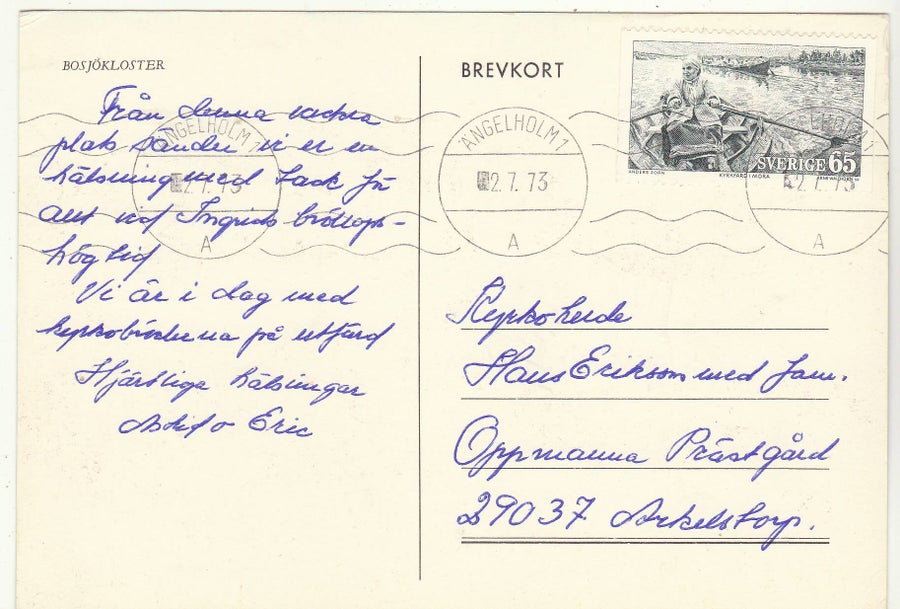 BOSJÖKLOSTER
Från denna vackra
plats sänder vi er en
hälsning med tack för
allt vid Ingrids bröllops-
högtid
Vi är i dag med
kyrkobröderna på utfärd
Hjärtliga hälsningar
o Eric
BREVKORT
ÄNGELHOLM 1
2.7.73
A
ÄNGELHOLM 1
2.7.73
A
ÄNGELHOLM 1
2.7.73
A
SVERIGE 65
ANDERS ZORN
KYRKFÄRD I MORA
Kyrkoherde
Hans Eriksson med fam.
Oppmanna Prästgård
29037 Arkelstorp.